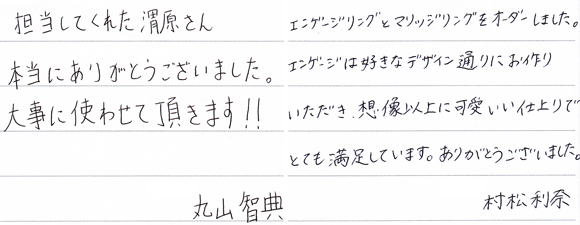 担当してくれた渭原さん
本当にありがとうございました。
大事に使わせて頂きます!!
丸山智典
エンゲージリングとマリッジリングをオーダーしました。
エンゲージは好きなデザイン通りにお作り
いただき、想像以上に可愛いい仕上りで
とても満足しています。ありがとうございました。
村松利奈